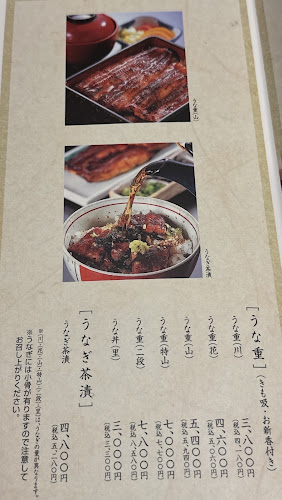 うな重(山)
うなぎ茶漬
[うな重](きも吸・お新香付き)
うな重(川) 三、八〇〇円
(税込 四、一八〇円)
うな重(花) 四、六〇〇円
(税込 五、〇六〇円)
うな重(山) 五、四〇〇円
(税込 五、九四〇円)
うな重(特山) 七、〇〇〇円
(税込 七、七〇〇円)
うな重(二段) 七、八〇〇円
(税込 八、五八〇円)
うな丼(里) 三、〇〇〇円
(税込 三、三〇〇円)
[うなぎ茶漬]
うなぎ茶漬 四、八〇〇円
(税込 五、二八〇円)
うなぎの量が異なります。
※うなぎには小骨が有りますので注意して
お召し上がりください。